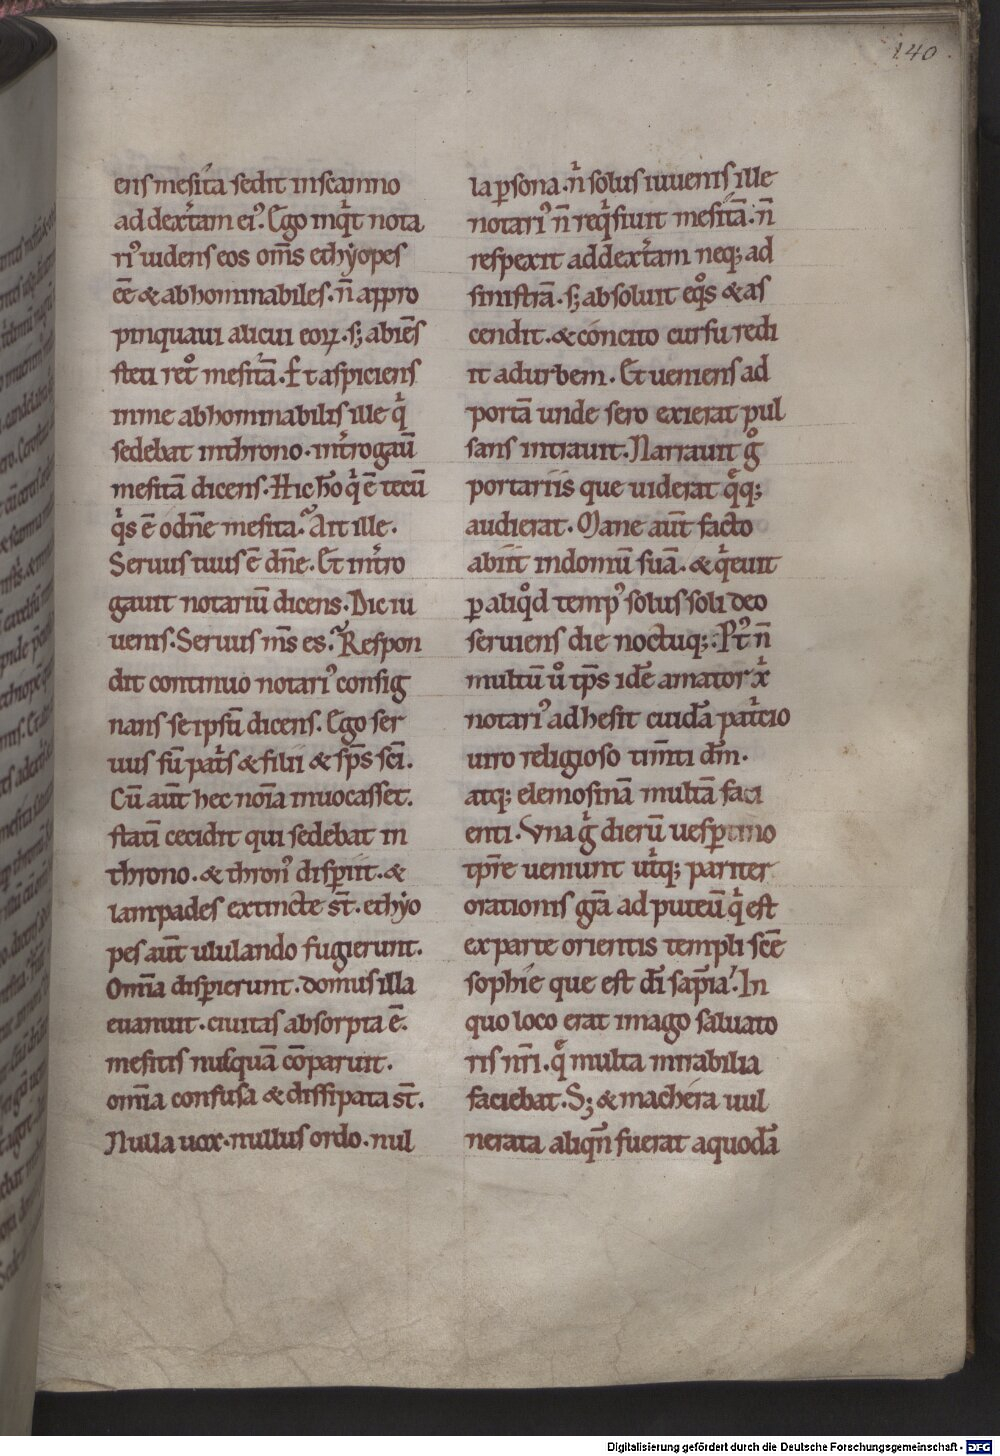 140
ens mesita sedit in scamno
ad dext̓am ei᾽. Ego inq̓t nota
ri᾽ uidens eos om̄s ethyopes
ēē & abhominabiles. n̄ appro
pinquaui alicui eoꝝ. s; abiēs
steti ret° mesitā. Et aspiciens
in me abhominabilis ille q̓
sedebat in throno. int̓rogaū
mesitā dicens. Hic h̄o q̓ ē tecū
q̓s ē o dn̄e mesita. Ait ille.
Seruus tuus ē dn̄e. Et int̓ro
gauit notariū dicens. Dic iu
uenis. Seruus m̄s es. Respon
dit continuo notari᾽ consig
nans se ipsū dicens. Ego ser
uus sū pat̓s & filii & sp̄s sc̄i.
Cū aūt hec noīa inuocasset.
statī cecidit qui sedebat in
throno. & thron᾽ disꝑiit. &
lampades extincte s̄t. ethyo
pes aūt ululando fugierunt.
Omīa disꝑierunt. domus illa
euanuit. ciuitas absorpta ē.
mesitis nusquā cōparuit.
omīa confusa & dissipata s̄t.
Nulla uox. nullus ordo. nul
la ꝑsona. n̓ solus iuuenis ille
notari᾽ n̄ req̓siuit mesitā. n̄
respexit ad dext̓am neq; ad
sinistrā. s; absoluit eq°s & as
cendit. & concito cursu redi
it ad urbem. Et ueniens ad
portā unde sero exierat pul
sans intrauit. Narrauit g°
portariis que uiderat q̄q;
audierat. Mane aūt facto
abiit in domū suā. & q̓euit
ꝑ aliq°d temp᾽ solus soli deo
seruiens die noctuq;. P᾽t n̄
multū ů tp̄s idē amator x̓
notari᾽ adhesit cuidā pat̓cio
uiro religioso tim̄ti dm̄.
atq; elemosinā multā faci
enti. Vna g̓ dierū uesꝑtino
tp̄re ueniunt ut̓q; pariter
orationis gr̄a ad puteū q̓ est
ex parte orientis templi scē
sophie que est dī sap̄ia. In
quo loco erat imago saluato
ris nr̄i. q̄ multa mirabilia
faciebat. S; & machera uul
nerata aliqn̄ fuerat a quodā
Digitalisierung gefördert durch die Deutsche Forschungsgemeinschaft - DFG